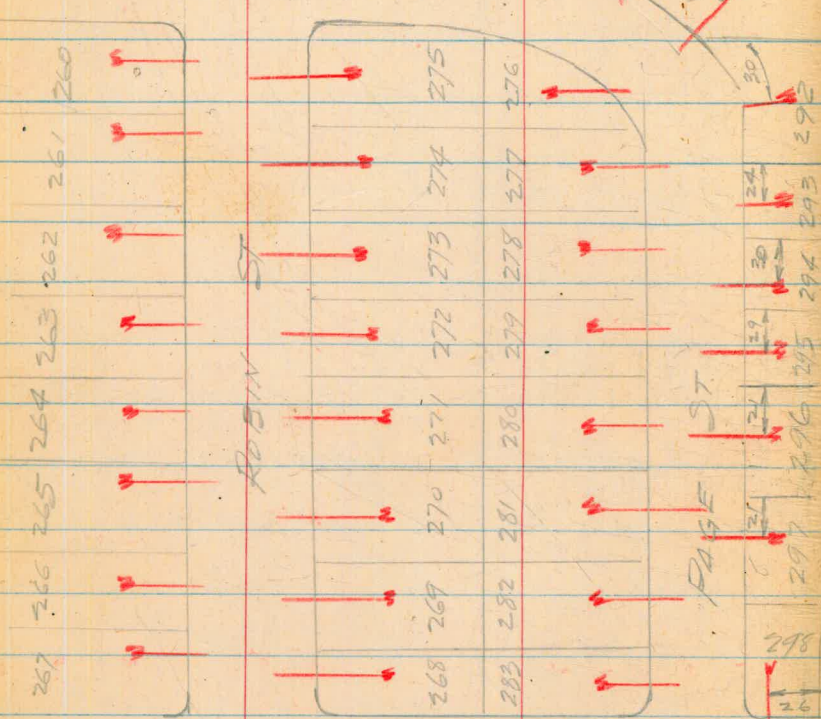 260
261
262
263
264
265
266
267
ROBIN ST
275
274
273
272
271
270
269
268
276
277
278
279
280
281
282
283
PAGE ST
30
24
30
29
21
21
26
292
293
294
295
296
297
298